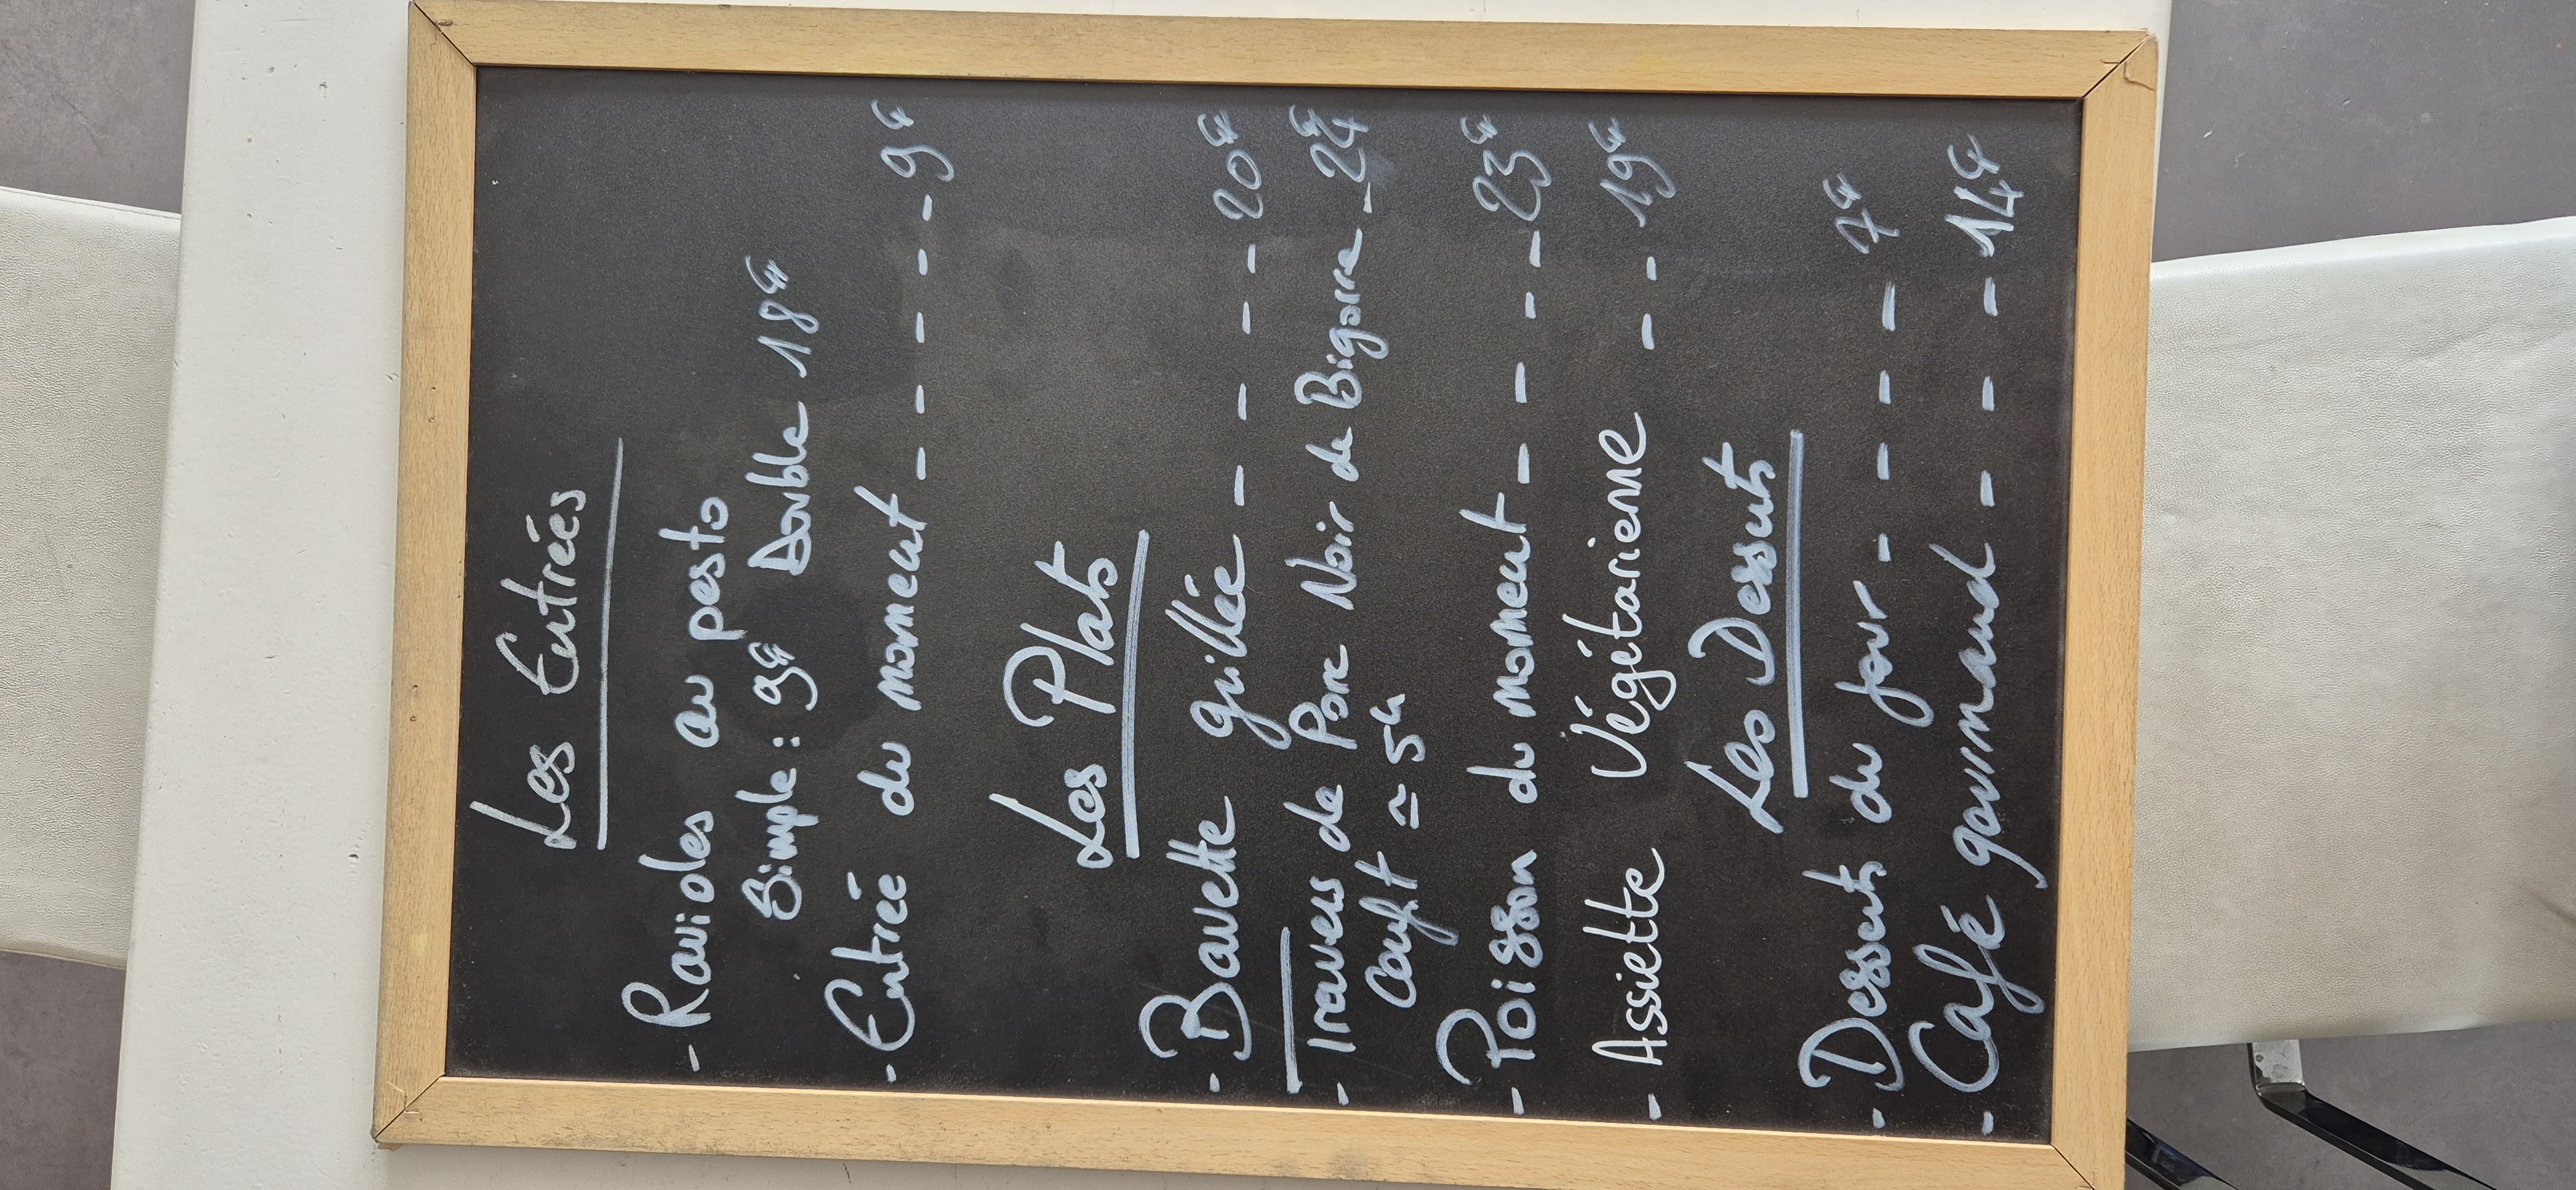 Les Entrées
- Ravioles au pesto
Simple : 9€ Double 18€
- Entrée du moment - - - - - 9€
Les Plats
- Bavette grillée - - - - - 20€
- Travers de Porc Noir de Bigorre - 24€
Confit ≃ 5h
- Poisson du moment - - - - 23€
- Assiette Végétarienne - - 19€
Les Desserts
- Desserts du jour - - - - 7€
- Café gourmand - - - - 14€